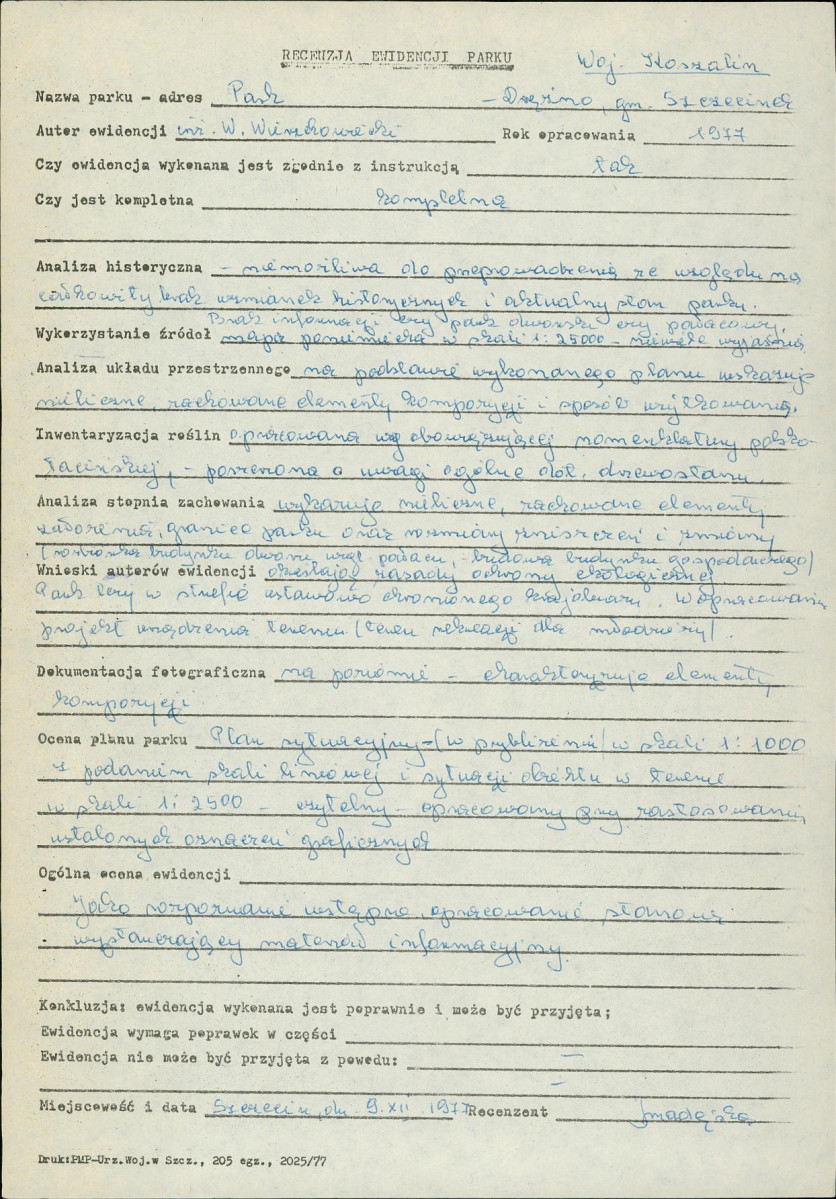 RECENZJA EWIDENCJI PARKU
Woj. Koszalin
Nazwa parku - adres Park - Drężno, gm. Szczecinek
Autor ewidencji inż. W. Wierzkowiecki Rok opracowania 1977
Czy ewidencja wykonana jest zgodnie z instrukcją tak
Czy jest kompletna kompletna
Analiza historyczna - niemożliwa do przeprowadzenia ze względu na
całkowity brak wzmianek historycznych i aktualny stan parku.
Brak informacji czy park dworski czy pałacowy,
Wykorzystanie źródeł mapa poniemiecka w skali 1:25000 - niewiele wyjaśnia
Analiza układu przestrzennego na podstawie wykonanego planu wskazuje
nieliczne, zachowane elementy kompozycji i sposób użytkowania.
Inwentaryzacja roślin opracowana wg obowiązującej nomenklatury polsko-
łacińskiej, - poszerzona o uwagi ogólne dot. drzewostanu.
Analiza stopnia zachowania wykazuje nieliczne, zachowane elementy
założenia, granice parku oraz rozmiary zniszczeń i zmiany
/rozbiórka budynku dworu wzgl. pałacu, - budowa budynku gospodarczego/
Wnioski autorów ewidencji określają zasady ochrony ekologicznej
Park leży w strefie ustawowo chronionego krajobrazu. W opracowaniu
projekt urządzenia terenu /teren rekreacji dla młodzieży/.
Dokumentacja fotograficzna na poziomie - charakteryzuje elementy
kompozycji
Ocena planu parku Plan sytuacyjny - /w przybliżeniu/ w skali 1:1000
z podaniem skali liniowej i sytuacji obiektu w terenie
w skali 1:2500 - czytelny - opracowany przy zastosowaniu
ustalonych oznaczeń graficznych
Ogólna ocena ewidencji
Jako rozpoznanie wstępne, opracowanie stanowi
wystarczający materiał informacyjny.
Konkluzja: ewidencja wykonana jest poprawnie i może być przyjęta;
Ewidencja wymaga poprawek w części
Ewidencja nie może być przyjęta z powodu: —
—
Miejscowość i data Szczecin, dn. 9.XII.1977 Recenzent
Druk:PMP-Urz.Woj.w Szcz., 205 egz., 2025/77